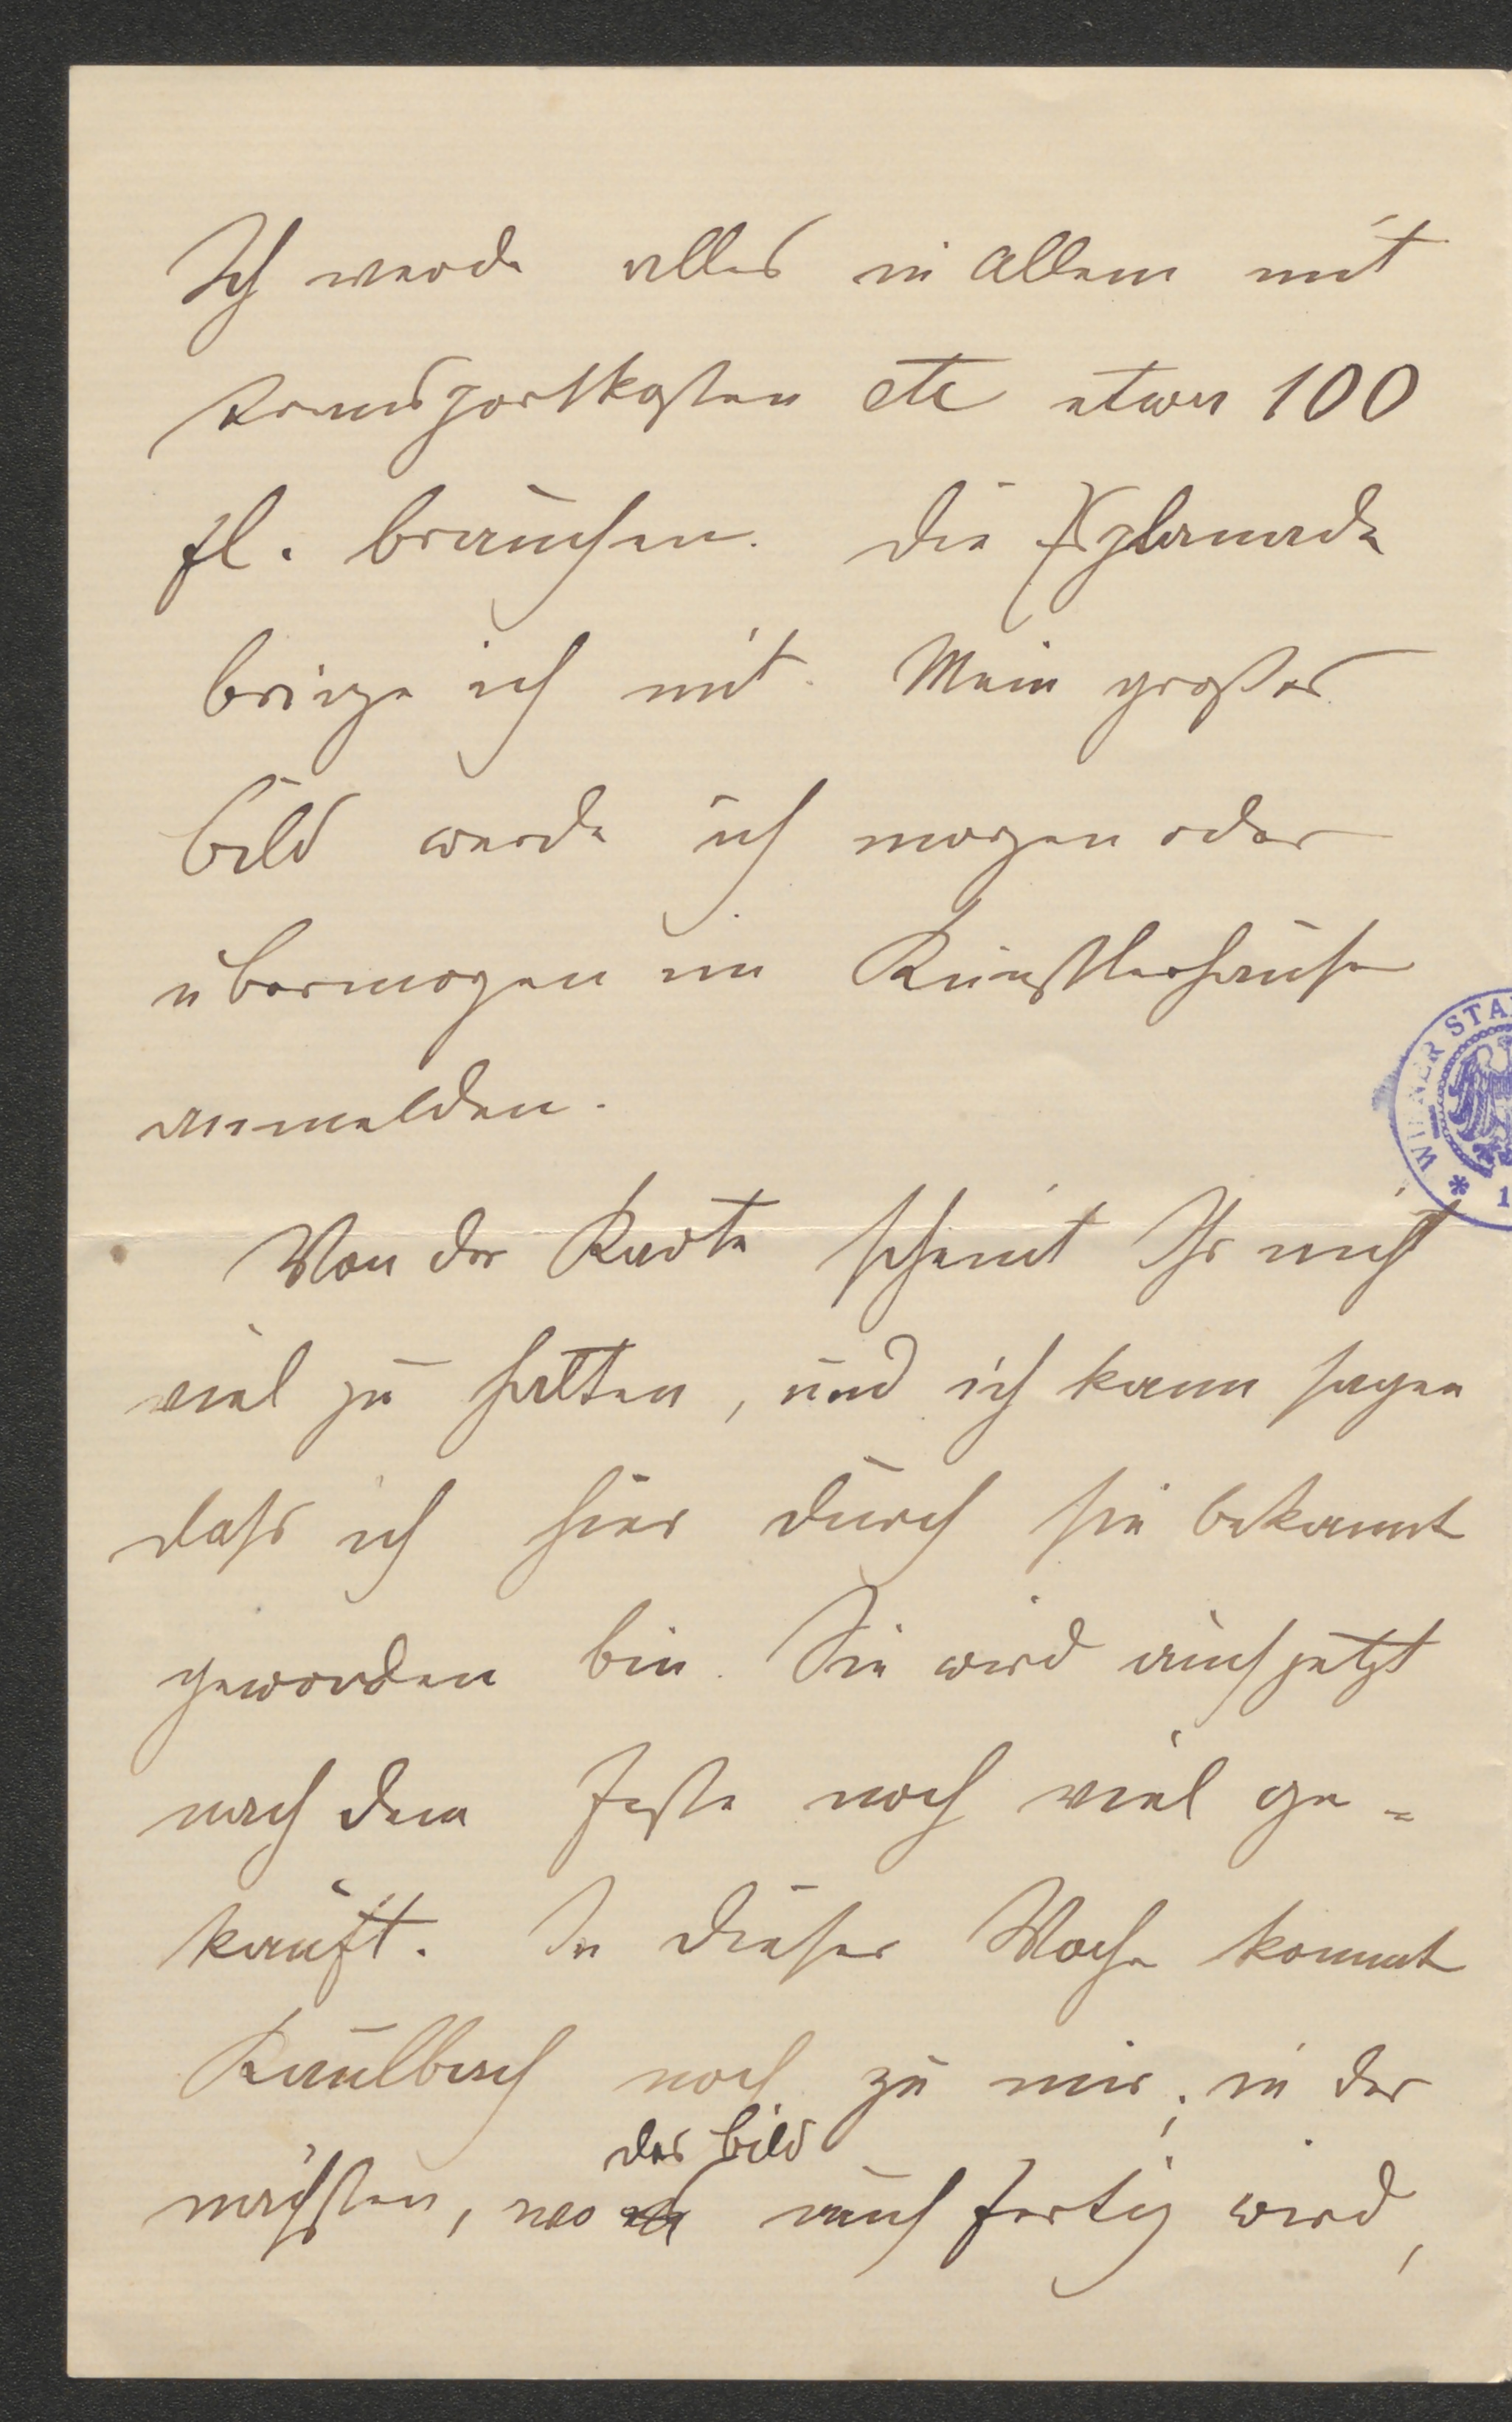 Ich werde alles in allem mit
Transportkosten etc etwa 100
fl. brauchen. Die Esplanade
bringe ich mit. Mein großes
Bild werde ich morgen oder
übermorgen im Künstlerhause
anmelden.
Von der Karte scheint Ihr nicht
viel zu halten, und ich kann sagen
dass ich hier durch sie bekannt
geworden bin. Sie wird auch jetzt
nach dem Feste noch viel ge=
kauft. In dieser Woche kommt
Kaulbach noch zu mir; in der
das Bild
nächsten, wo auch fertig wird,
WIENER STA
* 1